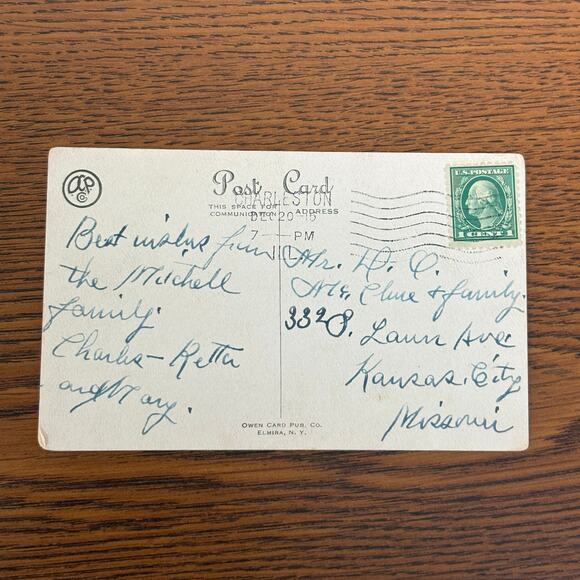 Post Card
THIS SPACE FOR
COMMUNICATION
ADDRESS
CHARLESTON
DEC 20
7 - PM
ILL
U.S. POSTAGE
1 CENT 1
Best wishes from
the Mitchell
family.
Charles - Retta
and Mary.
Mr. D. C.
Mc. Clure & family.
332 S. Lawn Ave
Kansas. City
Missouri
OWEN CARD PUB. CO.
ELMIRA, N. Y.